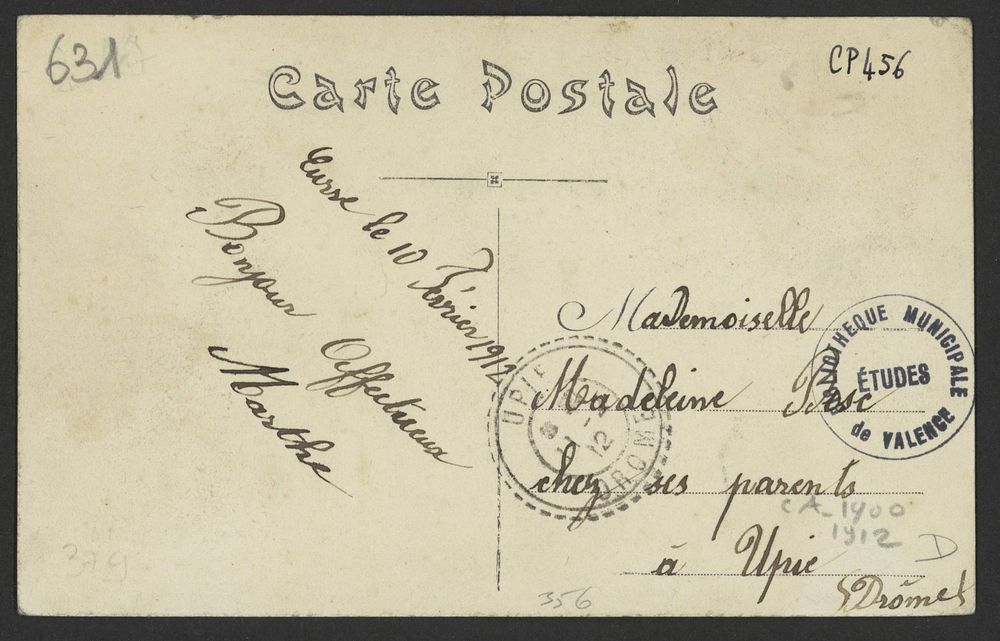 631
CP456
Carte Postale
Eurre le 10 Février 1912
Bonjour Affectueux
Marthe
Mademoiselle
Madeleine
chez ses parents
à Upie
(Drôme)
UPIE
DROME
12
BIBLIOTHEQUE MUNICIPALE
ÉTUDES
de VALENCE
CA_1900
1912
D
379
356